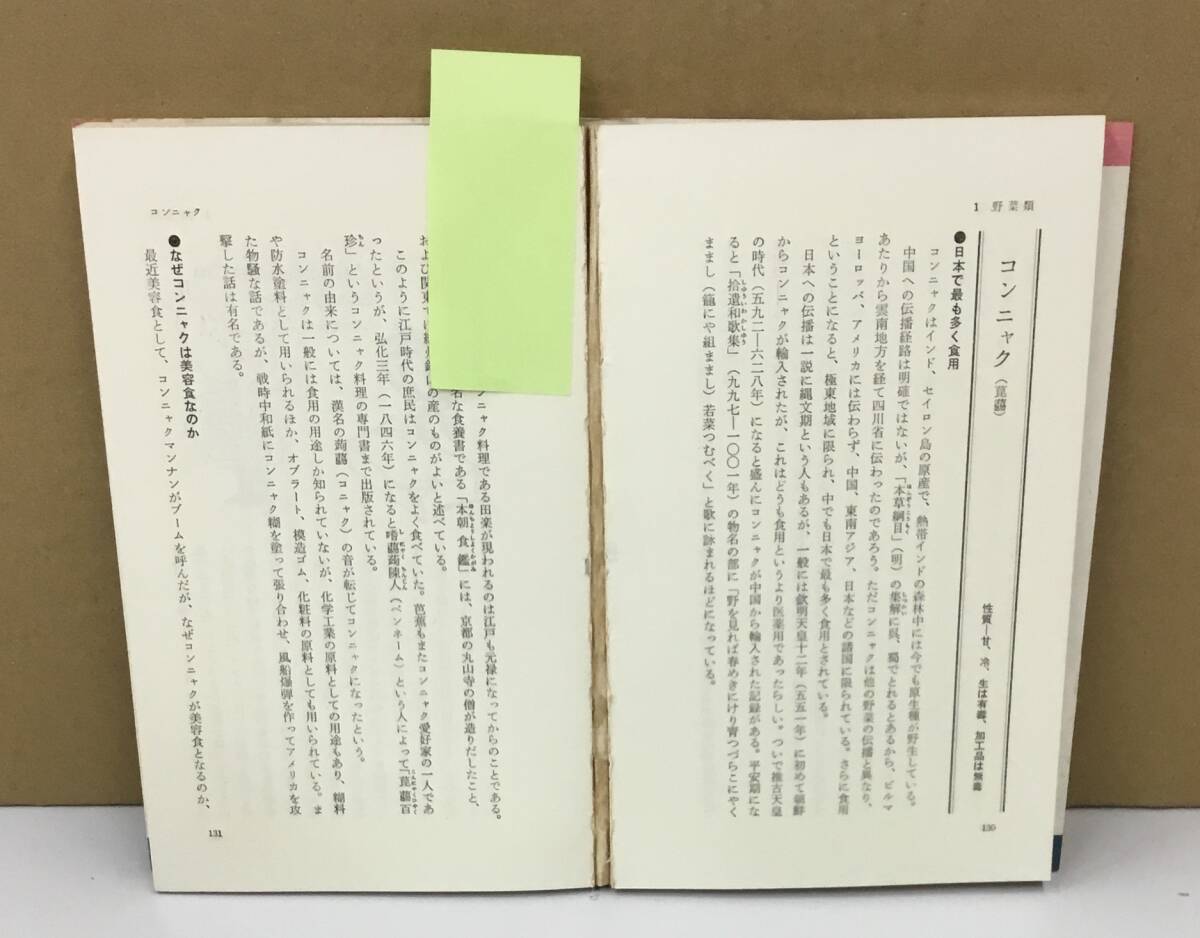 1 野菜類
コンニャク（菎蒻）
性質—甘、冷、生は有毒、加工品は無毒
●日本で最も多く食用
コンニャクはインド、セイロン島の原産で、熱帯インドの森林中には今でも原生種が野生している。
中国への伝播経路は明確ではないが、「本草綱目」（明）の集解に呉、蜀でとれるとあるから、ビルマ
あたりから雲南地方を経て四川省に伝わったのであろう。ただコンニャクは他の野菜の伝播と異なり、
ヨーロッパ、アメリカには伝わらず、中国、東南アジア、日本などの諸国に限られている。さらに食用
ということになると、極東地域に限られ、中でも日本で最も多く食用とされている。
日本への伝播は一説に縄文期という人もあるが、一般には欽明天皇十二年（五五一年）に初めて朝鮮
からコンニャクが輸入されたが、これはどうも食用というより医薬用であったらしい。ついで推古天皇
の時代（五九二—六二八年）になると盛んにコンニャクが中国から輸入された記録がある。平安期にな
ると「拾遺和歌集」（九九七—一〇〇一年）の物名の部に「野を見れば春めきにけり青つづらこにやく
ままし（籠にや組ままし）若菜つむべく」と歌に詠まれるほどになっている。
130
ニャク料理である田楽が現われるのは江戸も元禄になってからのことである。
名な食養書である「本朝食鑑」には、京都の丸山寺の僧が造りだしたこと、
の産のものがよいと述べている。
このように江戸時代の庶民はコンニャクをよく食べていた。芭蕉もまたコンニャク愛好家の一人であ
ったというが、弘化三年（一八四六年）になると嗜蒻陳人（ペンネーム）という人によって「菎蒻百
珍」というコンニャク料理の専門書まで出版されている。
名前の由来については、漢名の蒟蒻（コニャク）の音が転じてコンニャクになったという。
コンニャクは一般には食用の用途しか知られていないが、化学工業の原料としての用途もあり、糊料
や防水塗料として用いられるほか、オブラート、模造ゴム、化粧料の原料としても用いられている。ま
た物騒な話であるが、戦時中和紙にコンニャク糊を塗って張り合わせ、風船爆弾を作ってアメリカを攻
撃した話は有名である。
●なぜコンニャクは美容食なのか
最近美容食として、コンニャクマンナンがブームを呼んだが、なぜコンニャクが美容食となるのか、
コンニャク
131